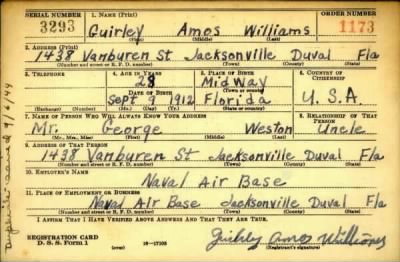 SERIAL NUMBER 1. NAME (Print) ORDER NUMBER
3293 Guirley Amos Williams 1173
(First) (Middle) (Last)
2. ADDRESS (Print)
1438 Vanburen St Jacksonville Duval Fla
(Number and street or R. F. D. number) (Town) (County) (State)
3. TELEPHONE 4. AGE IN YEARS 5. PLACE OF BIRTH 6. COUNTRY OF CITIZENSHIP
28 MidWay
DATE OF BIRTH (Town or county)
Sept 1912 Florida U.S.A.
(Exchange) (No.) (Mo.) (Day) (Yr.) (State or country)
7. NAME OF PERSON WHO WILL ALWAYS KNOW YOUR ADDRESS 8. RELATIONSHIP OF THAT PERSON
Mr. George Weston Uncle
(Mr., Mrs., Miss) (First) (Middle) (Last)
9. ADDRESS OF THAT PERSON
1438 Vanburen St Jacksonville Duval Fla
(Number and street or R. F. D. number) (Town) (County) (State)
10. EMPLOYER'S NAME
Naval Air Base
11. PLACE OF EMPLOYMENT OR BUSINESS
Naval Air Base Jacksonville Duval Fla
(Number and street or R. F. D. number) (Town) (County) (State)
I AFFIRM THAT I HAVE VERIFIED ABOVE ANSWERS AND THAT THEY ARE TRUE.
REGISTRATION CARD
D. S. S. Form 1 16—17105 Guirley Amos Williams
(Registrant's signature)
Duplicate issued 9/6/44